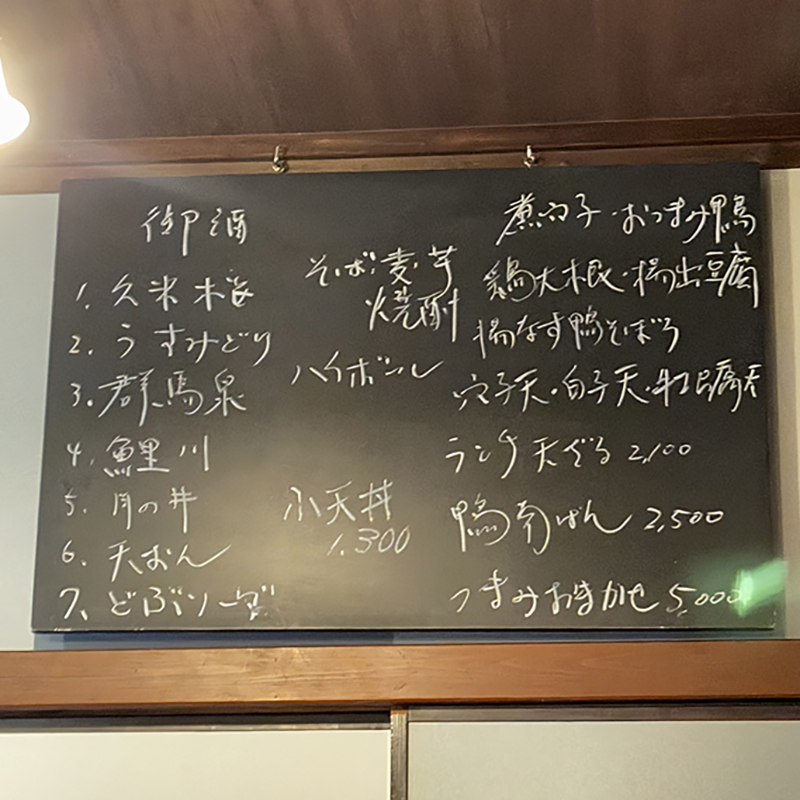 御酒
1. 久米桜
2. うすみどり
3. 群馬泉
4. 鯉川
5. 月の井
6. 天おん
7. どぶソーダ
そば・麦・芋
焼酎
ハイボール
小天丼
1.300
煮穴子・おつまみ鴨
鶏大根・揚出豆腐
揚なす鴨そぼろ
穴子天・白子天・牡蠣天
ランチ天ざる 2,100
鴨南ばん 2,500
つまみおまかせ 5,000